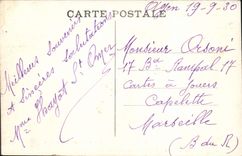 CARTE POSTALE
19-9-30
Meilleurs Souvenirs
& Sincères Salutations
Mme Hagot St Omer
Monsieur Orsoni
17 Bd Rampal 17
Cartes à Jouer
Capelette
Marseille
(B du R)